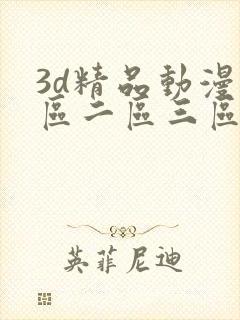 3d精品動漫
區二區三區
英菲尼迪